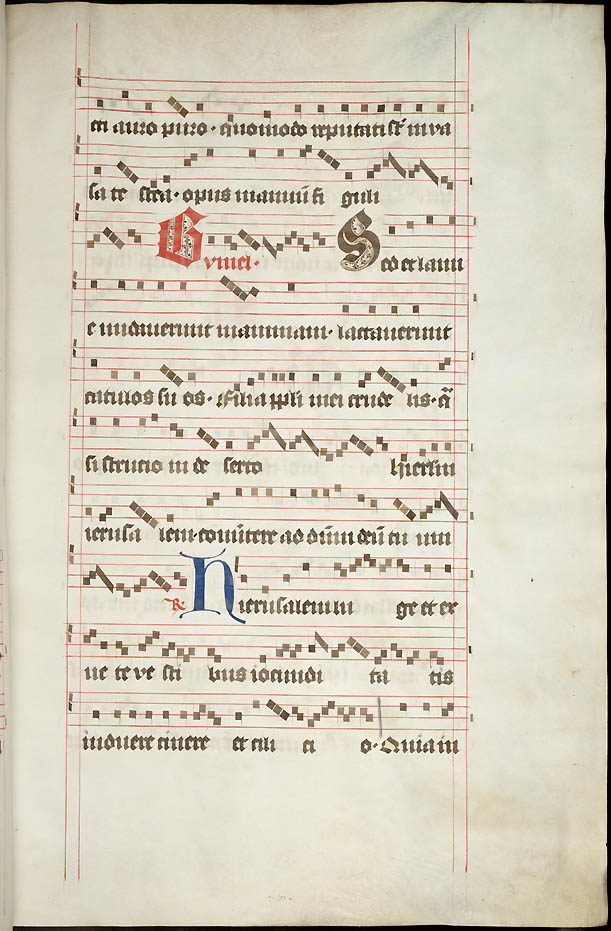 cti auro puro · quomodo reputati st̄ in va
sa te stea · opus manuū fi guli
Gymel · Sed et lami
e nudaverunt mammam · lactaverunt
catulos su os · Filia ppli mei crude lis · q̄
si strucio in de serto Hierusa
ierusa lem · convertere ad dn̄m deū tu um
R Hierusalem lu ge et ex
ue te ve sti bus iocundi ta tis
induere cinere et cili ci o · Quia in